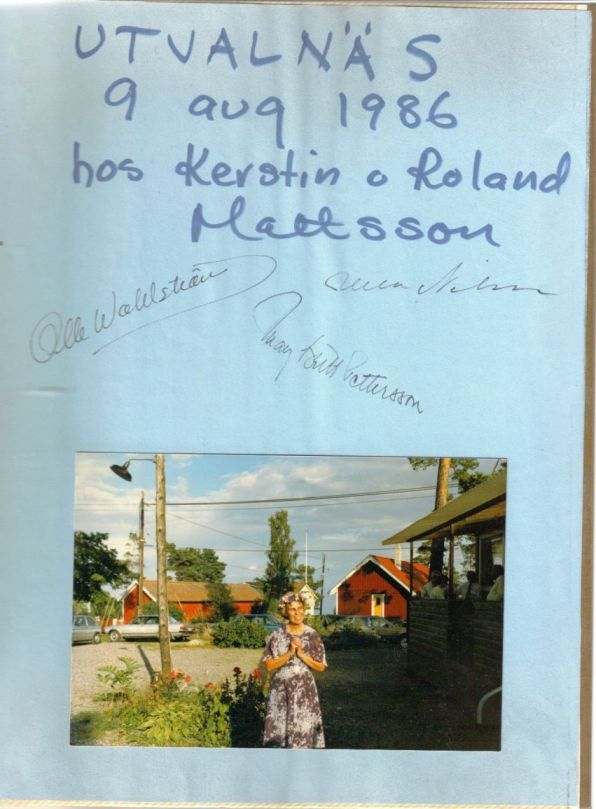 UTVALNÄS
9 aug 1986
hos Kerstin o Roland
Mattsson
Nilsson
Olle Wahlström
May Britt Pettersson